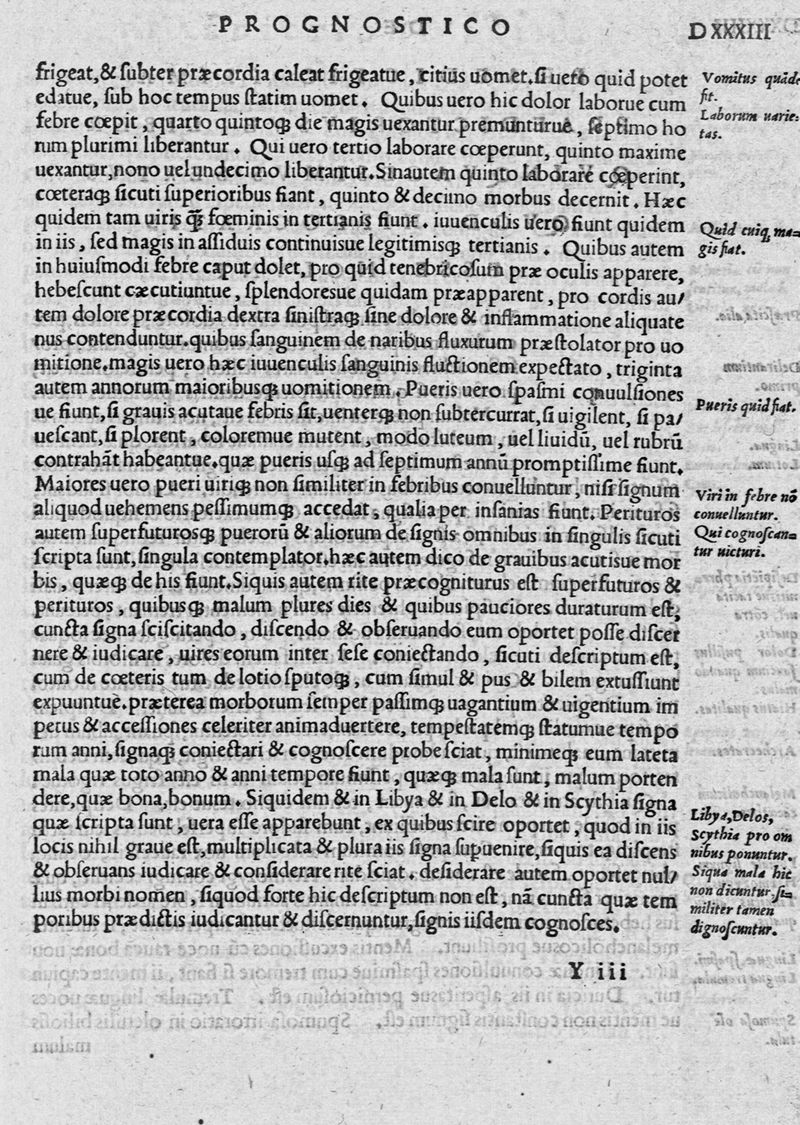 PROGNOSTICO
DXXXIII
frigeat,& ſubter præcordia caleat frigeatue, citius uomet.ſi uero quid potet
edatue, ſub hoc tempus ſtatim uomet. Quibus uero hic dolor laborue cum
febre cœpit, quarto quintoqꝫ die magis uexantur premunturue, ſeptimo ho
rum plurimi liberantur. Qui uero tertio laborare cœperunt, quinto maxime
uexantur,nono uel undecimo liberantur.Sinautem quinto laborare cœperint,
cœteraqꝫ ſicuti ſuperioribus fiant, quinto & decimo morbus decernit. Hæc
quidem tam uiris qꝫ̃ fœminis in tertianis fiunt. iuuenculis uero fiunt quidem
in iis, ſed magis in aſſiduis continuisue legitimisqꝫ tertianis. Quibus autem
in huiuſmodi febre caput dolet, pro quid tenebricoſum præ oculis apparere,
hebeſcunt cæcutiuntue, ſplendoresue quidam præapparent, pro cordis au/
tem dolore præcordia dextra ſiniſtraqꝫ ſine dolore & inflammatione aliquate
nus contenduntur.quibus ſanguinem de naribus fluxurum præſtolator pro uo
mitione.magis uero hæc iuuenculis ſanguinis fluctionem expectato, triginta
autem annorum maioribusqꝫ uomitionem. Pueris uero ſpaſmi conuulſiones
ue fiunt,ſi grauis acutaue febris ſit,uenterqꝫ non ſubtercurrat,ſi uigilent, ſi pa/
ueſcant,ſi plorent, coloremue mutent, modo luteum, uel liuidū, uel rubrū
contrahāt habeantue.quæ pueris uſqꝫ ad ſeptimum annū promptiſſime fiunt.
Maiores uero pueri uiriqꝫ non ſimiliter in febribus conuelluntur, niſi ſignum
aliquod uehemens peſſimumqꝫ accedat, qualia per inſanias fiunt. Perituros
autem ſuperfuturosqꝫ puerorū & aliorum de ſignis omnibus in ſingulis ſicuti
ſcripta ſunt,ſingula contemplator.hæc autem dico de grauibus acutisue mor
bis, quæqꝫ de his fiunt.Siquis autem rite præcogniturus eſt ſuperfuturos &
perituros, quibusqꝫ malum plures dies & quibus pauciores duraturum eſt,
cuncta ſigna ſciſcitando, diſcendo & obſeruando eum oportet poſſe diſcer
nere & iudicare, uires eorum inter ſeſe coniectando, ſicuti deſcriptum eſt,
cum de cœteris tum de lotio ſputoqꝫ, cum ſimul & pus & bilem extuſſiunt
expuuntue.præterea morborum ſemper paſſimqꝫ uagantium & uigentium im
petus & acceſſiones celeriter animaduertere, tempeſtatemqꝫ ſtatumue tempo
rum anni,ſignaqꝫ coniectari & cognoſcere probe ſciat, minimeqꝫ eum lateta
mala quæ toto anno & anni tempore fiunt, quæqꝫ mala ſunt, malum porten
dere,quæ bona,bonum. Siquidem & in Libya & in Delo & in Scythia ſigna
quæ ſcripta ſunt, uera eſſe apparebunt, ex quibus ſcire oportet, quod in iis
locis nihil graue eſt,multiplicata & plura iis ſigna ſupuenire,ſiquis ea diſcens
& obſeruans iudicare & conſiderare rite ſciat. deſiderare autem oportet nul/
lius morbi nomen, ſiquod forte hic deſcriptum non eſt, nā cuncta quæ tem
poribus prædictis iudicantur & diſcernuntur,ſignis iiſdem cognoſces.
Y iii
Vomitus quāde
fit.
Laborum uarie-
tas.
Quid cuiqꝫ ma-
gis fiat.
Pueris quid fiat.
Viri in febre nō
conuelluntur.
Qui cognoſcan-
tur uicturi.
Libya,Delos,
Scythia pro om
nibus ponuntur.
Siqua mala hic
non dicuntur,ſi-
militer tamen
dignoſcuntur.